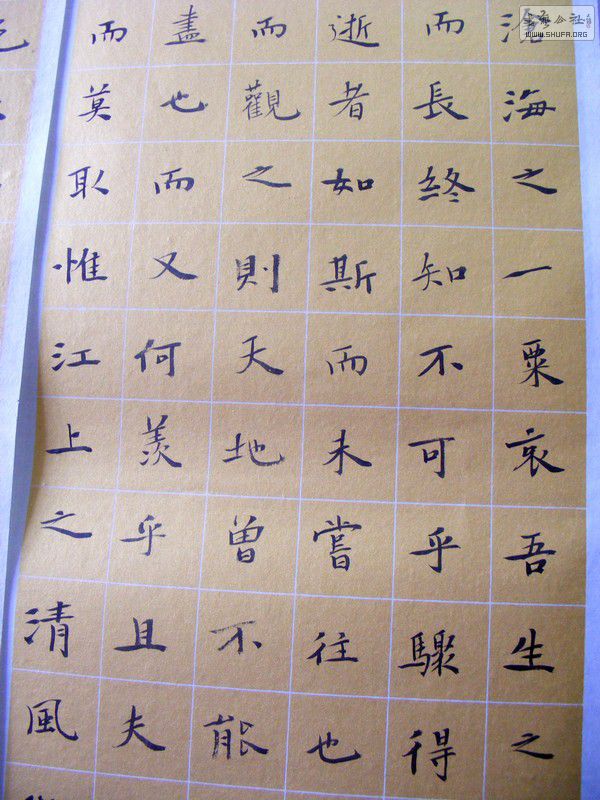 滄海之一粟哀吾生之
而長終知不可乎驟得
逝者如斯而未嘗往也
而觀之則天地曾不能
盡也而又何羨乎且夫
而莫取惟江上之清風
WWW.SHUFA.ORG